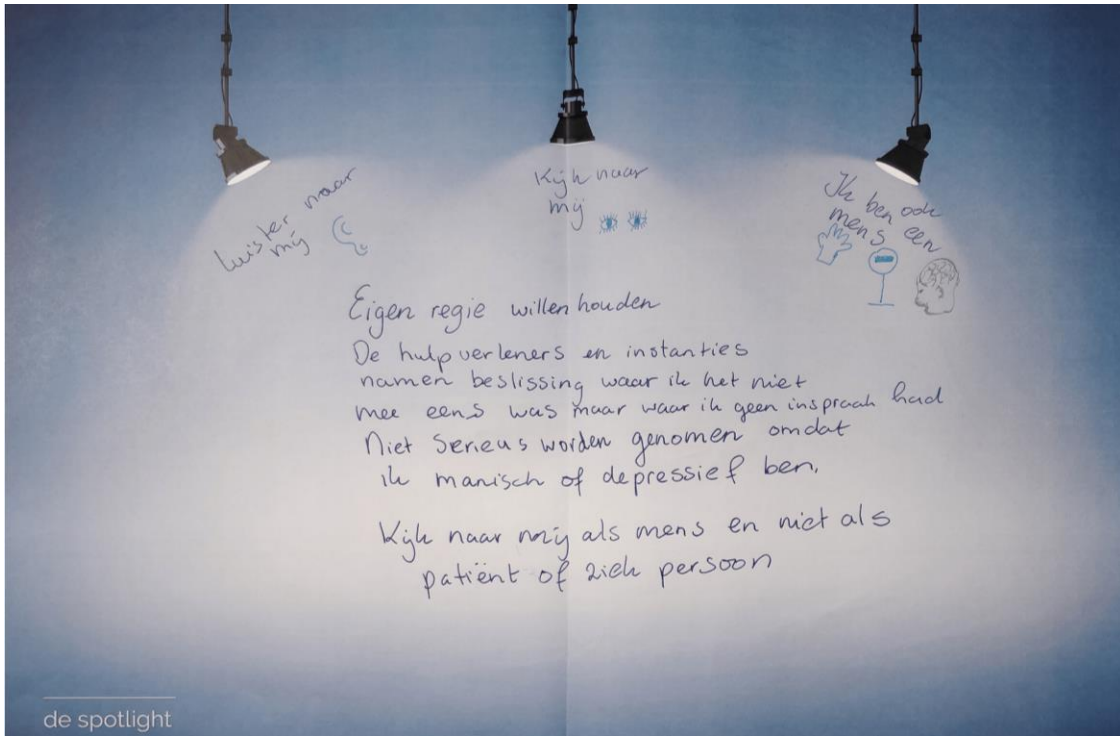 luister naar
mij
Kijk naar
mij
Ik ben ook
mens een
Eigen regie willen houden
De hulpverleners en instanties
namen beslissing waar ik het niet
mee eens was maar waar ik geen inspraak had
Niet serieus worden genomen omdat
ik manisch of depressief ben.
Kijk naar mij als mens en niet als
patiënt of ziek persoon
de spotlight